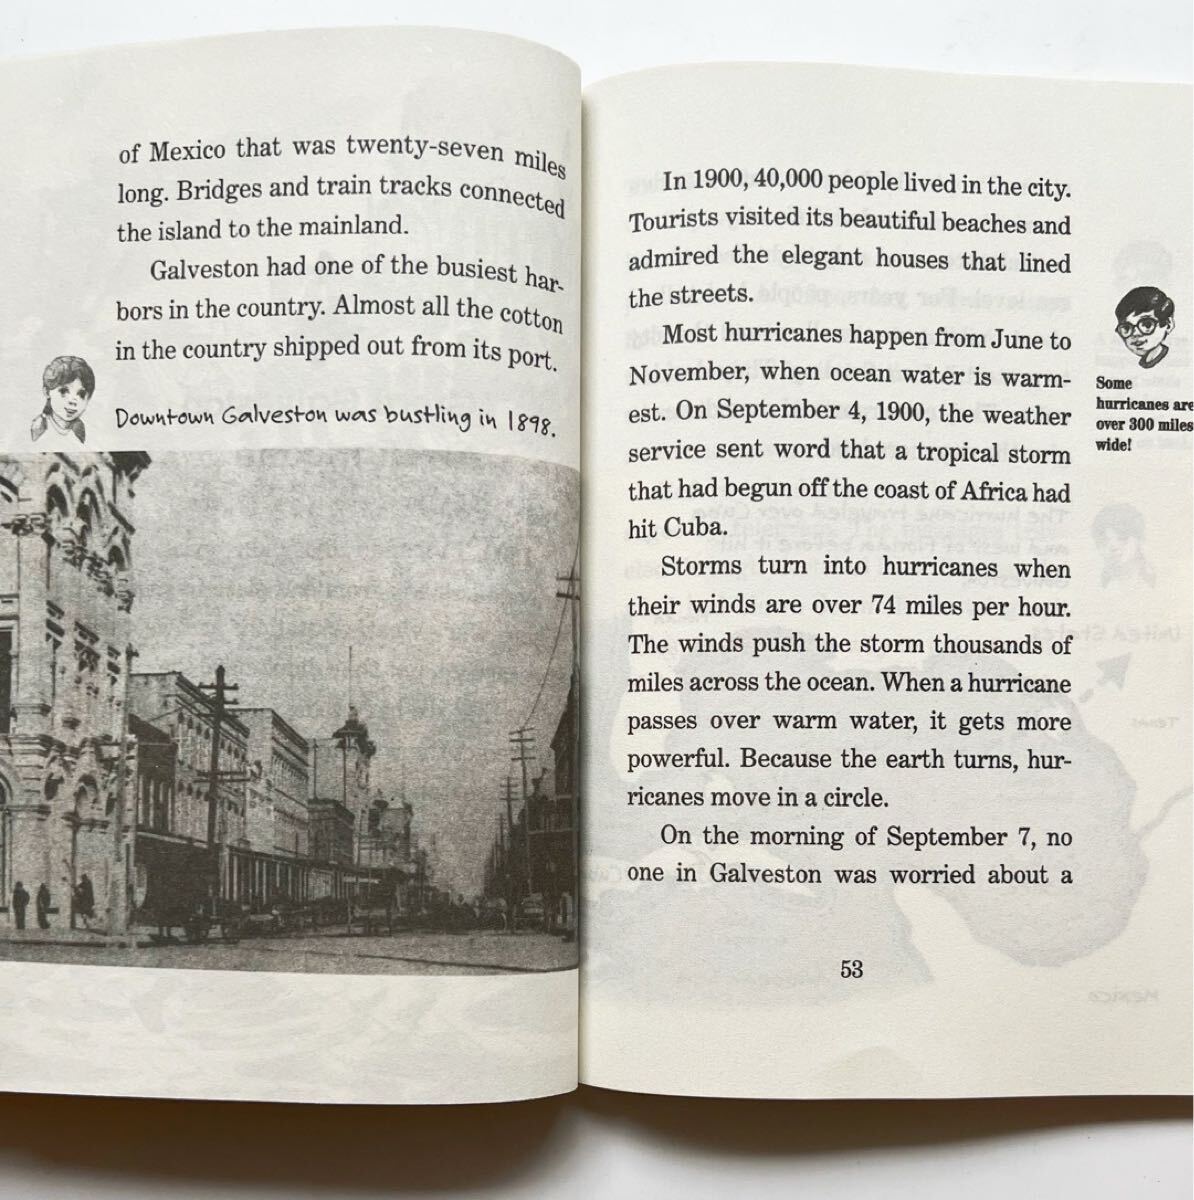 of Mexico that was twenty-seven miles
long. Bridges and train tracks connected
the island to the mainland.
Galveston had one of the busiest har-
bors in the country. Almost all the cotton
in the country shipped out from its port.
Downtown Galveston was bustling in 1898.
In 1900, 40,000 people lived in the city.
Tourists visited its beautiful beaches and
admired the elegant houses that lined
the streets.
Most hurricanes happen from June to
November, when ocean water is warm-
est. On September 4, 1900, the weather
service sent word that a tropical storm
that had begun off the coast of Africa had
hit Cuba.
Storms turn into hurricanes when
their winds are over 74 miles per hour.
The winds push the storm thousands of
miles across the ocean. When a hurricane
passes over warm water, it gets more
powerful. Because the earth turns, hur-
ricanes move in a circle.
On the morning of September 7, no
one in Galveston was worried about a
53
Some
hurricanes are
over 300 miles
wide!